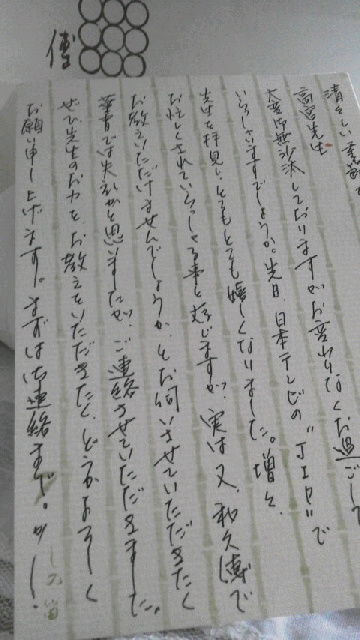 高宮先生
大変御無沙汰しておりますがお変わりなくお過ごして
いらっしゃいますでしょうか。先日、日本テレビの"ZIP"で
先生を拝見し、とってもとっても嬉しくなりました。増々、
お忙しくされていらっしゃる事と存じますが、実は又、和久傳で
お教えいただけませんでしょうか、とお伺いさせていただきたく
ご連絡させていただきました。
ぜひ先生のお力をお教えをいただきたく、どうかよろしく
お願い申し上げます。まずは御連絡まで。かしこ
傳